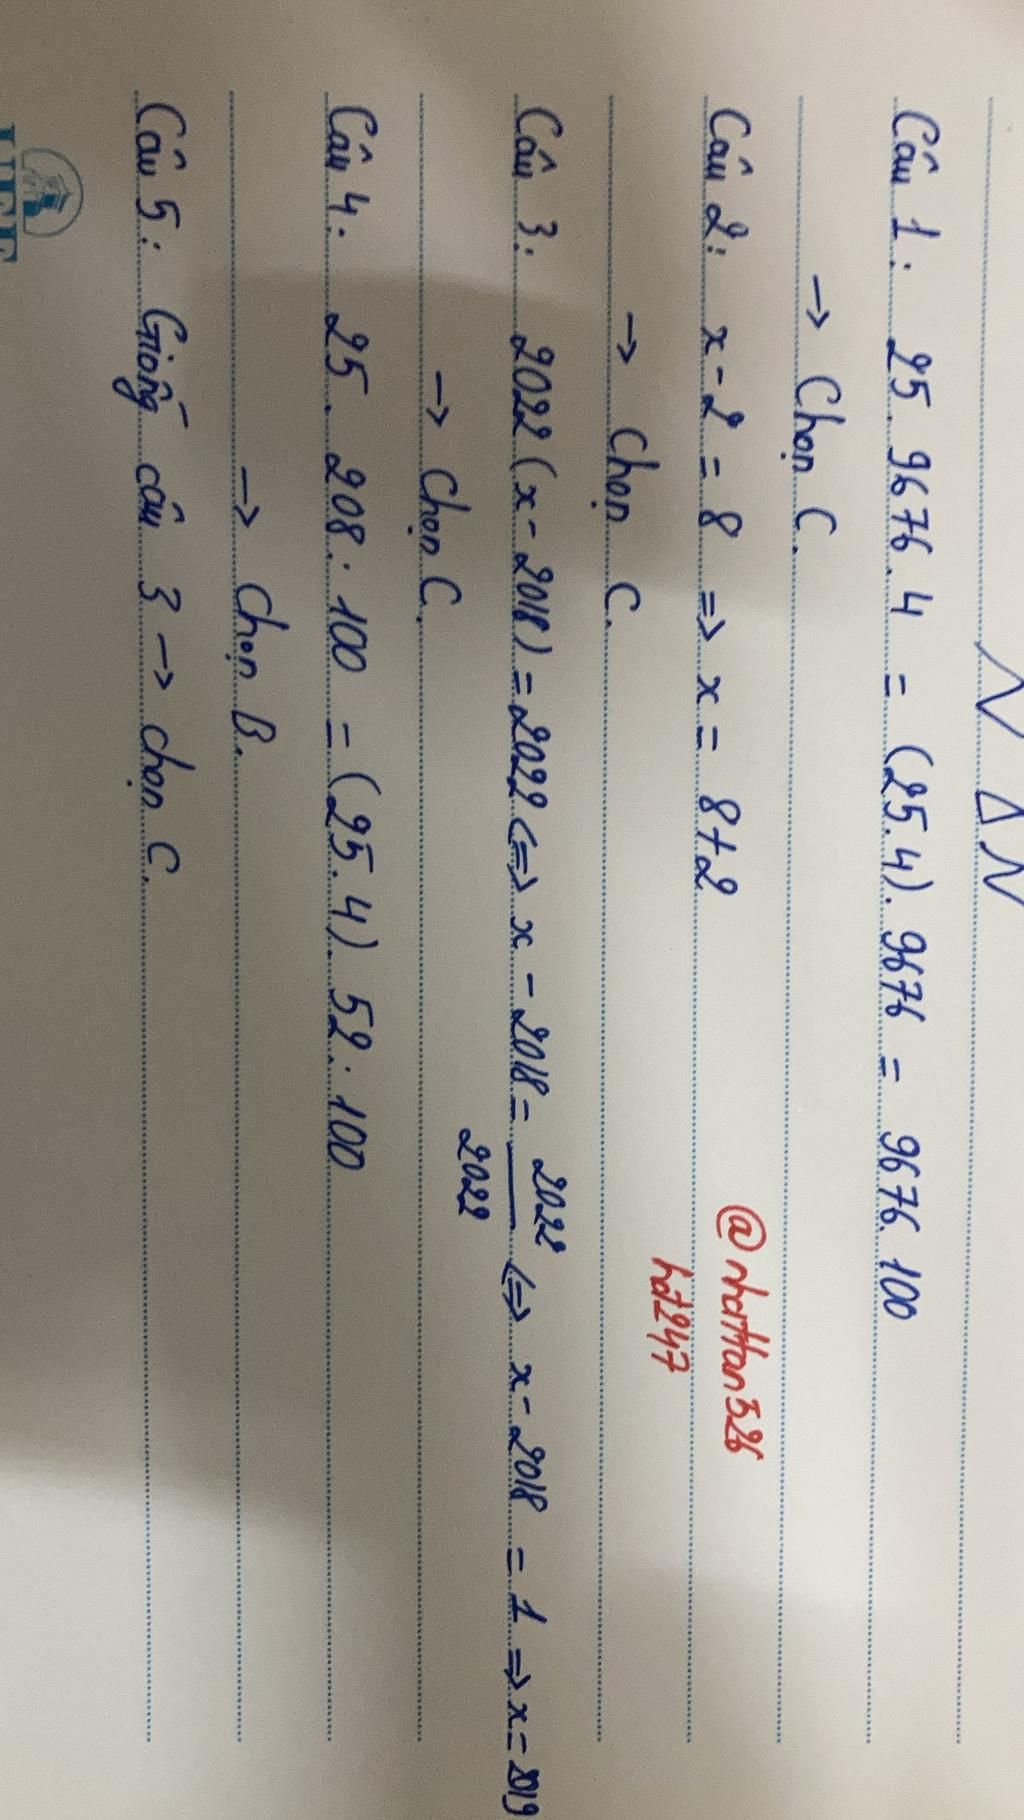 Câu 1: 25. 9676. 4 = (25.4). 9676 = 9676. 100
→ Chọn C.
Câu 2: x - 2 = 8 => x = 8+2
@nhatHan326
hdt247
→ Chọn C.
Câu 3: 2022 (x - 2018) = 2022 <=> x - 2018 = 2022/2022 <=> x - 2018 = 1 => x = 2019
→ Chọn C.
Câu 4: 25. 208. 100 = (25.4). 52. 100
→ Chọn B.
Câu 5: Giống câu 3 → chọn C.